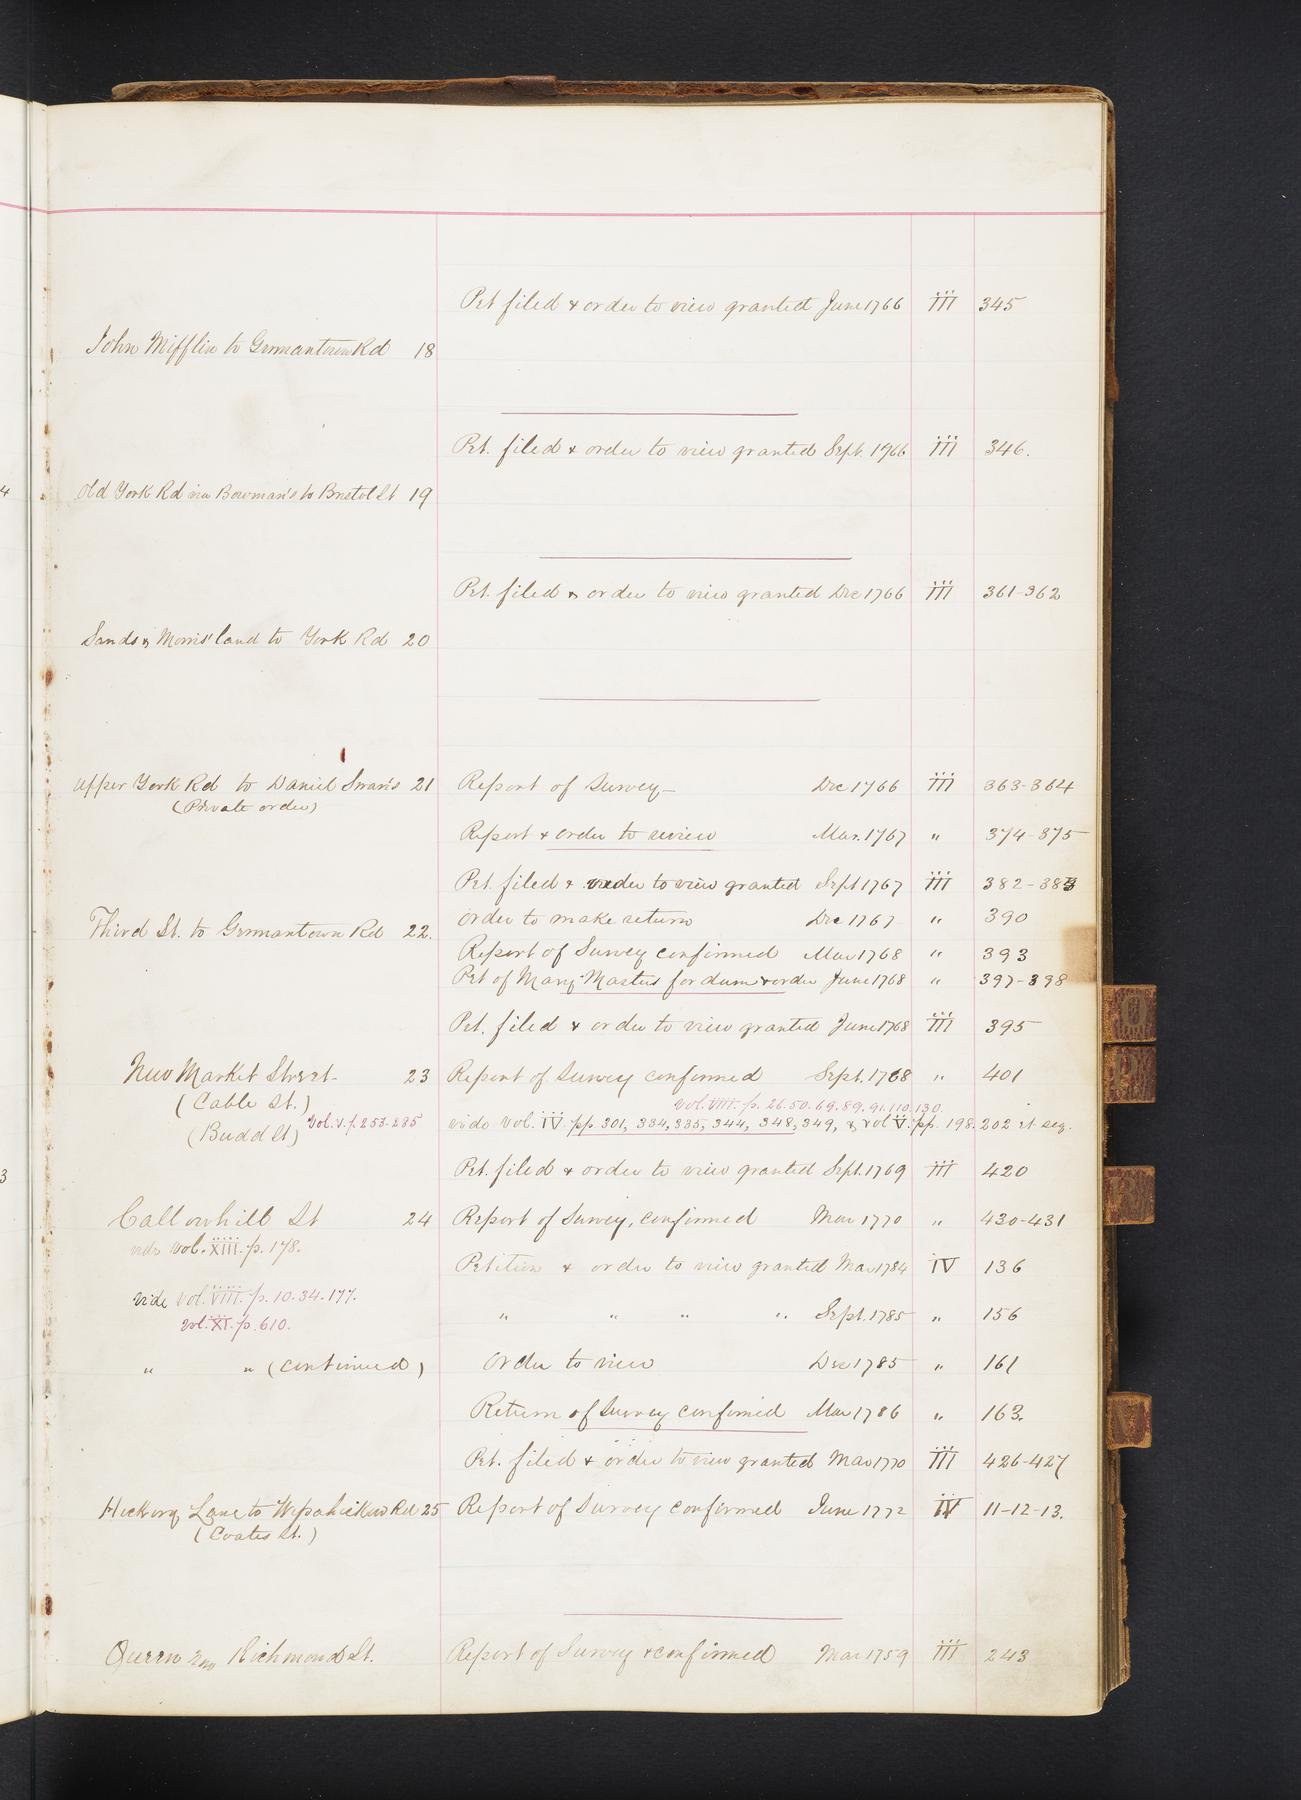 Pet filed & order to view granted June 1766 III 345
John Mifflin to Germantown Rd 18
Pet. filed & order to view granted Sept. 1766 III 346.
4
Old York Rd via Bowman's to Bristol St 19
Pet. filed & order to view granted Dec 1766 III 361-362
Sands & Morris' land to York Rd 20
Upper York Rd to Daniel Swan's 21 Report of Survey Dec 1766 III 363-364
(Private order)
Report & order to review Mar. 1767 " 374-375
Pet. filed & order to view granted Sept 1767 III 382-383
order to make return Dec 1767 " 390
Third St. to Germantown Rd 22.
Report of Survey confirmed Mar 1768 " 393
Pet of Mary Masters for dam & order June 1768 " 397-398
Pet. filed & order to view granted June 1768 III 395
New Market Street 23 Report of Survey confirmed Sept. 1768 " 401
(Cable St.) Vol. VIII. p. 26.50.69.89.91.110.130.
(Budd St) Vol. V. p. 253-285 vide Vol. IV. pp. 301, 334, 335, 344, 348, 349, & Vol V. pp. 198. 202 et seq.
3
Pet. filed & order to view granted Sept. 1769 III 420
Callowhill St 24 Report of Survey, confirmed Mar 1770 " 430-431
vide vol. XIII. p. 178.
Petition & order to view granted Mar 1784 IV 136
vide Vol. VIII. p. 10.34.177.
" " " " Sept. 1785 " 156
Vol. XI. p. 610.
" " (continued) Order to view Dec 1785 " 161
Return of Survey confirmed Mar 1786 " 163.
Pet. filed & order to view granted Mar 1770 III 426-427
Hickory Lane to Wissahickon Rd 25 Report of Survey confirmed June 1772 IV 11-12-13.
(Coates St.)
Queen now Richmond St. Report of Survey & confirmed Mar 1759 III 243